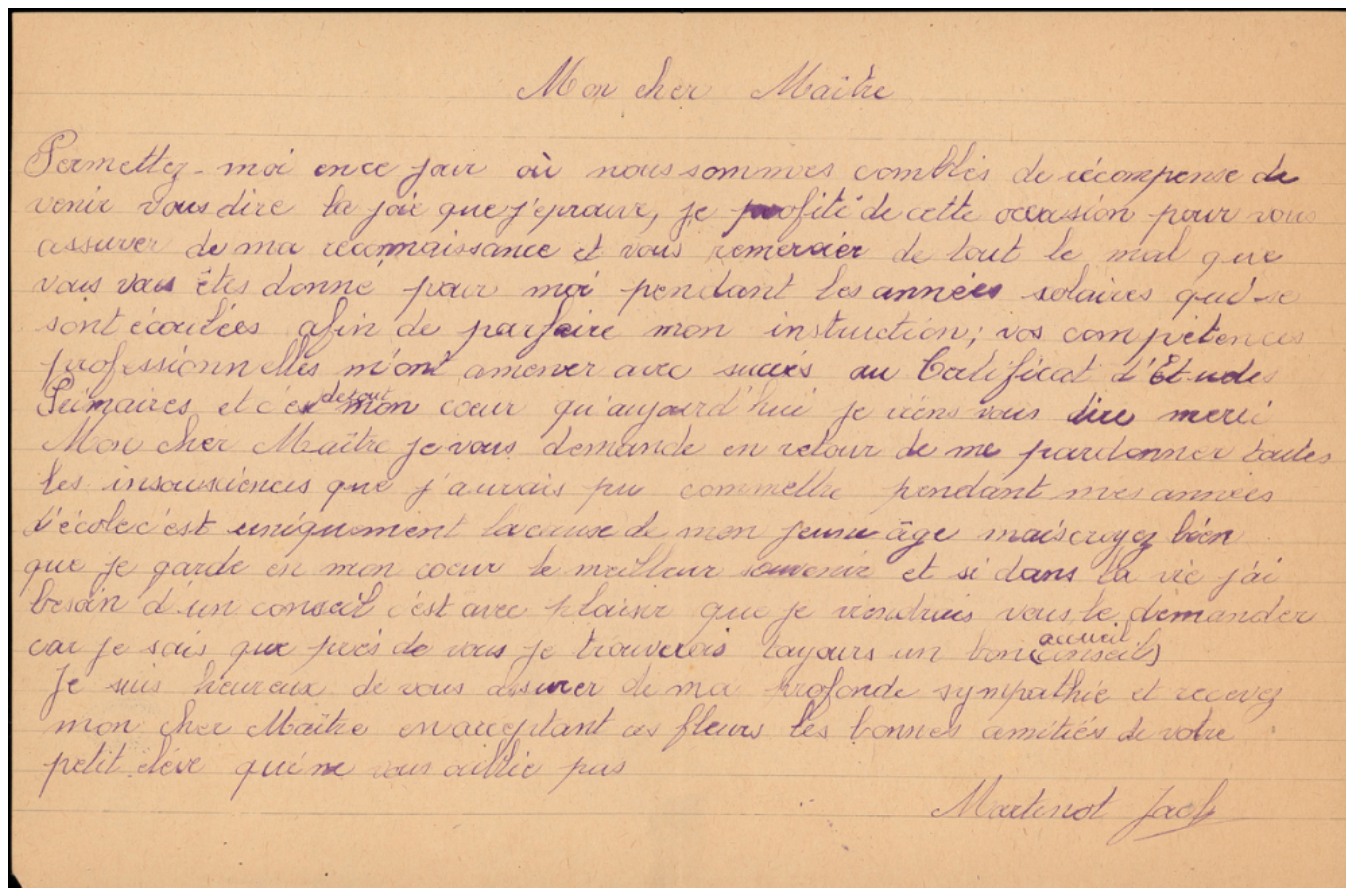 Mon cher Maître
Permettez-moi en ce jour où nous sommes comblés de récompense de
venir vous dire la joie que j'éprouve, je profite de cette occasion pour vous
assurer de ma reconnaissance et vous remercier de tout le mal que
vous vous êtes donné pour moi pendant les années solaires qui se
sont écoulées afin de parfaire mon instruction; vos compétences
professionnelles m'ont amener avec succès au Certificat d'Etudes
Primaires et c'est de tout mon cœur qu'aujourd'hui je viens vous dire merci
Mon cher Maître je vous demande en retour de me pardonner toutes
les insousiences que j'aurais pu commettre pendant mes années
d'école c'est uniquement la cause de mon jeune âge mais croyez bien
que je garde en mon coeur le meilleur souvenir et si dans la vie j'ai
besoin d'un conseil c'est avec plaisir que je viendrais vous le demander
car je sais que près de vous je trouverais toujours un bon (conseil) accueil
Je suis heureux de vous assurer de ma profonde sympathie et recevez
mon cher Maître en acceptant ces fleurs les bonnes amitiés de votre
petit élève qui ne vous oublie pas
Martinot